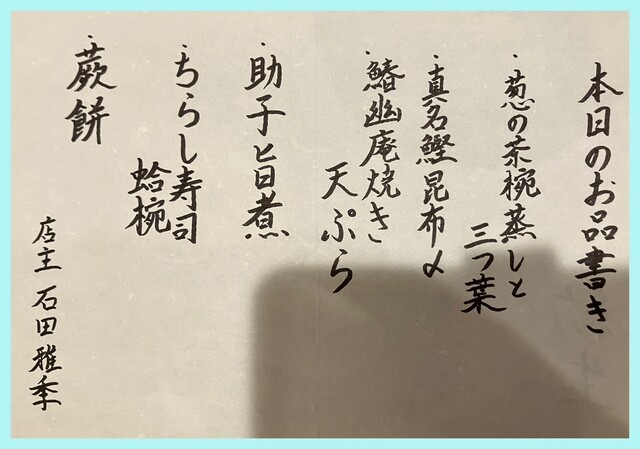 本日のお品書き
・葱の茶椀蒸しと
三つ葉
・真名鰹昆布〆
・鰆幽庵焼き
天ぷら
・助子旨煮
・ちらし寿司
蛤椀
・蕨餅
店主 石田雅季